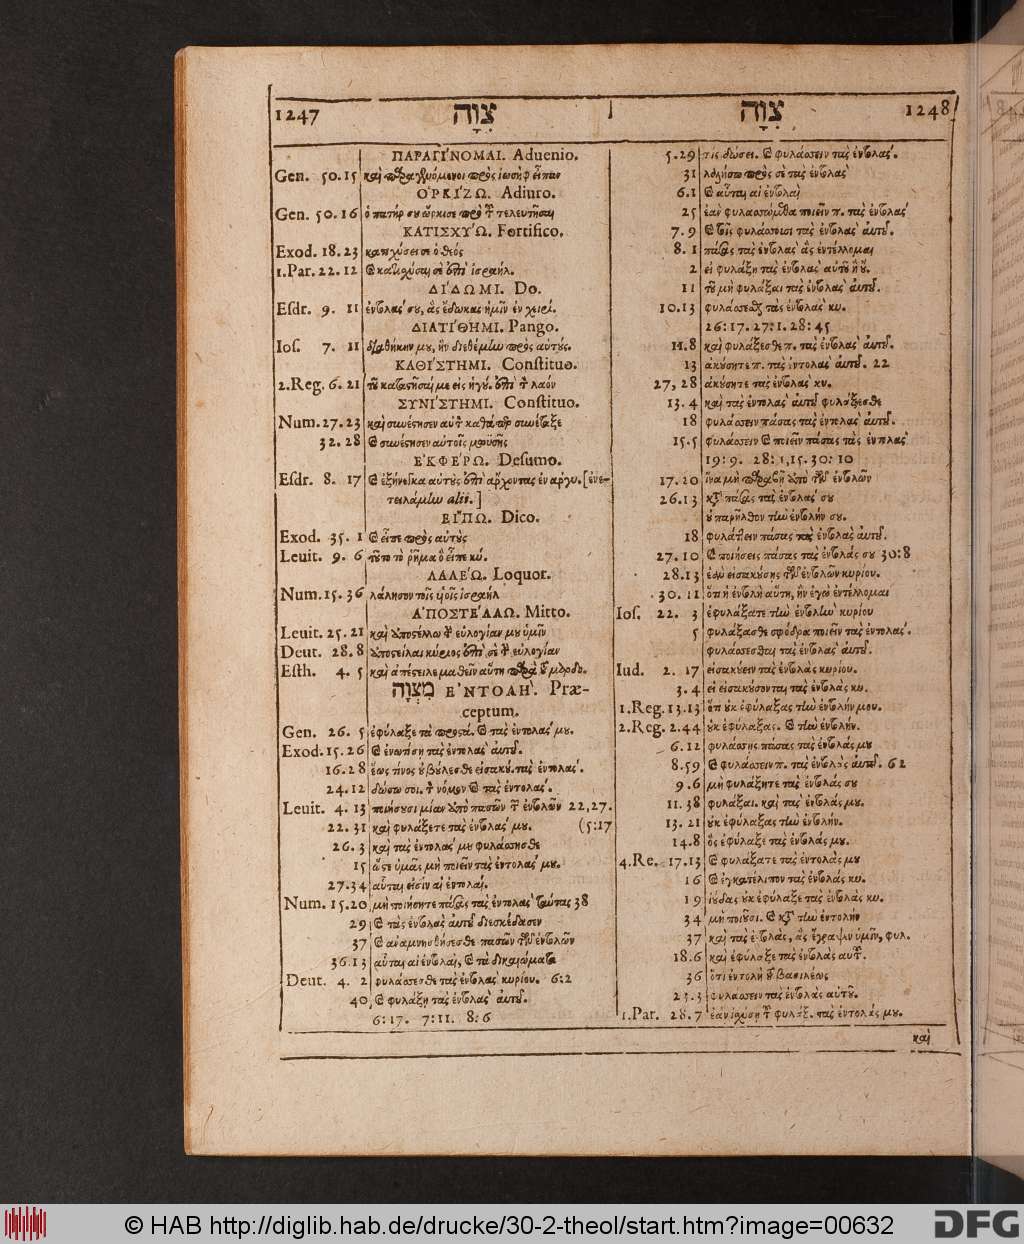 1247 צִוָּה
צִוָּה 1248
ΠΑΡΑΓΙΝΟΜΑΙ. Aduenio.
Gen. 50.15 καὶ παραγενόμενοι πρὸς ἰωσὴφ εἶπαν
ΟΡΚΙΖΩ. Adiuro.
Gen. 50.16 ὁ πατήρ σου ὥρκισε πρὸ τῦ τελευτῆσαι
ΚΑΤΙΣΧΥΏ. Fortifico.
Exod. 18.23 κατισχύσει σε ὁ θεός
1.Par. 22.12 ϗ κατισχύσαι σε ἐπὶ ἰσραήλ.
ΔΊΔΩΜΙ. Do.
Eſdr. 9. 11 ἐντολάς σου, ἃς ἔδωκας ἡμῖν ἐν χειρί.
ΔΙΑΤΊΘΗΜΙ. Pango.
Ioſ. 7. 11 διαθήκην μου, ἣν διεθέμην πρὸς αὐτούς.
ΚΑΘΊΣΤΗΜΙ. Conſtituo.
2.Reg. 6. 21 τοῦ καταστῆσαί με εἰς ἡγού. ἐπὶ τὸν λαόν
ΣΥΝΊΣΤΗΜΙ. Conſtituo.
Num. 27. 23 καὶ συνέστησεν αὐτὸν καθάπερ συνέταξε
32. 28 ϗ συνέστησεν αὐτοῖς μωϋσῆς
ἘΚΦΈΡΩ. Deſumo.
Eſdr. 8. 17 ϗ ἐξήνεγκα αὐτοὺς ἐπὶ ἄρχοντας ἐν ἀργυ. [ἐνε-
τειλάμην alii.]
ΕἼΠΩ. Dico.
Exod. 35. 1 ϗ εἶπε πρὸς αὐτούς
Leuit. 9. 6 τοῦτο τὸ ῥῆμα ὃ εἶπε κύ.
ΛΑΛΈΩ. Loquor.
Num. 15. 36 λάλησον τοῖς υἱοῖς ἰσραήλ
ἈΠΟΣΤΈΛΛΩ. Mitto.
Leuit. 25. 21 καὶ ἀποστέλλω τὴν εὐλογίαν μου ὑμῖν
Deut. 28. 8 ἀποστείλαι κύριος ἐπὶ σὲ τὴν εὐλογίαν
Eſth. 4. 5 καὶ ἀπέστειλε μαθεῖν αὕτη παρὰ τοῦ μαρδο.
מִצְוָה ἘΝΤΟΛΉ. Præ-
ceptum.
Gen. 26. 5 ἐφύλαξε τὰ προστά. ϗ τὰς ἐντολάς μου.
Exod. 15. 26 ϗ ἐνωτίσῃ τὰς ἐντολὰς αὐτοῦ.
16. 28 ἕως τίνος οὐ βούλεσθε εἰσακού. τὰς ἐντολάς.
24. 12 δώσω σοι. τὸν νόμον ϗ τὰς ἐντολάς.
Leuit. 4. 13 ποιήσουσι μίαν ἀπὸ πασῶν τῶν ἐντολῶν 22, 27.
22. 31 καὶ φυλάξετε τὰς ἐντολάς μου. (5:17
26. 3 καὶ τὰς ἐντολάς μου φυλάσσησθε
15 ὥστε ὑμᾶς μὴ ποιεῖν τὰς ἐντολάς μου.
27. 34 αὗται εἰσὶν αἱ ἐντολαί.
Num. 15. 20 μὴ ποιήσητε πάσας τὰς ἐντολὰς ταύτας 38
29 ϗ τὰς ἐντολὰς αὐτοῦ διεσκέδασεν
37 ϗ ἀναμνησθήσεσθε πασῶν τῶν ἐντολῶν
36. 13 αὗται αἱ ἐντολαί, ϗ τὰ δικαιώματα
Deut. 4. 2 φυλάσσεσθε τὰς ἐντολὰς κυρίου. 6:2
40 ϗ φυλάξῃ τὰς ἐντολὰς αὐτοῦ.
6:17. 7:11. 8:6
5. 29 τίς δώσει. ϗ φυλάσσειν τὰς ἐντολάς.
31 λαλήσω πρὸς σὲ τὰς ἐντολάς
6. 1 ϗ αὗται αἱ ἐντολαί
25 ἐὰν φυλασσώμεθα ποιεῖν π. τὰς ἐντολάς
7. 9 ϗ τοῖς φυλάσσουσι τὰς ἐντολὰς αὐτοῦ.
8. 1 πάσας τὰς ἐντολὰς ἃς ἐντέλλομαι
2 εἰ φυλάξῃ τὰς ἐντολὰς αὐτοῦ ἢ οὔ.
11 τοῦ μὴ φυλάξαι τὰς ἐντολὰς αὐτοῦ.
10. 13 φυλάσσεσθαι τὰς ἐντολὰς κυ.
26:17. 27:1. 28:45
11. 8 καὶ φυλάξεσθε π. τὰς ἐντολὰς αὐτοῦ.
13 ἀκούσητε π. τὰς ἐντολὰς αὐτοῦ. 22
27, 28 ἀκούσητε τὰς ἐντολὰς κυ.
13. 4 καὶ τὰς ἐντολὰς αὐτοῦ φυλάξεσθε
18 φυλάσσειν πάσας τὰς ἐντολὰς αὐτοῦ.
15. 5 φυλάσσειν ϗ ποιεῖν πάσας τὰς ἐντολάς
19:9. 28:1, 15. 30:10
17. 20 ἵνα μὴ παραβῇ ἀπὸ τῶν ἐντολῶν
26. 13 κατὰ πάσας τὰς ἐντολάς σου
οὐ παρῆλθον τὴν ἐντολήν σου.
18 φυλάττειν πάσας τὰς ἐντολὰς αὐτοῦ.
27. 10 ϗ ποιήσεις πάσας τὰς ἐντολάς σου 30:8
28. 13 ἐὰν εἰσακούσῃς τῶν ἐντολῶν κυρίου.
30. 11 ὅτι ἡ ἐντολὴ αὕτη, ἣν ἐγὼ ἐντέλλομαι
Ioſ. 22. 3 ἐφυλάξατε τὴν ἐντολὴν κυρίου
5 φυλάξασθε σφόδρα ποιεῖν τὰς ἐντολάς.
φυλάσσεσθαι τὰς ἐντολὰς αὐτοῦ.
Iud. 2. 17 εἰσακούειν τὰς ἐντολὰς κυρίου.
3. 4 εἰ εἰσακούσονται τὰς ἐντολὰς κυ.
1.Reg. 13. 13 ὅτι οὐκ ἐφύλαξας τὴν ἐντολήν μου.
2.Reg. 2. 44 οὐκ ἐφύλαξας. ϗ τὴν ἐντολήν.
6. 12 φυλάσσῃς πάσας τὰς ἐντολάς μου
8. 59 ϗ φυλάσσειν π. τὰς ἐντολὰς αὐτοῦ. 62
9. 6 μὴ φυλάξητε τὰς ἐντολάς σου
11. 38 φυλάξαι. καὶ τὰς ἐντολάς μου.
13. 21 οὐκ ἐφύλαξας τὴν ἐντολήν.
14. 8 ὃς ἐφύλαξε τὰς ἐντολάς μου.
4.Re. 17. 13 ϗ φυλάξατε τὰς ἐντολάς μου
16 ϗ ἐγκατέλιπον τὰς ἐντολὰς κυ.
19 ἰούδας οὐκ ἐφύλαξε τὰς ἐντολὰς κυ.
34 μὴ ποιοῦσι. ϗ κατὰ τὴν ἐντολήν
37 καὶ τὰς ἐντολάς, ἃς ἔγραψεν ὑμῖν, φυλ.
18. 6 καὶ ἐφύλαξε τὰς ἐντολὰς αὐτοῦ.
36 ὅτι ἐντολὴ τοῦ βασιλέως
23. 3 φυλάσσειν τὰς ἐντολὰς αὐτοῦ.
1.Par. 28. 7 ἐὰν ἰσχύσῃ τοῦ φυλάξ. τὰς ἐντολάς μου.
καὶ
© HAB http://diglib.hab.de/drucke/30-2-theol/start.htm?image=00632
DFG